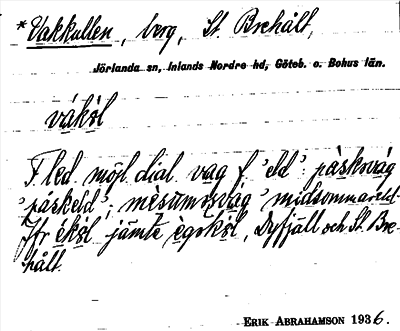 *Vakkullen, berg, St. Brehålt,
Jörlanda sn, Inlands Nordre hd, Göteb. o. Bohus län.
våkøl
F. led. möjl. dial. vag f. 'eld': påskvåg
'påskeld'; mèsumosvåg 'midsommareld.
Jfr ékøl jämte ègøkøl, Dyfjäll och St. Bre-
hålt.
ERIK ABRAHAMSON 1936.